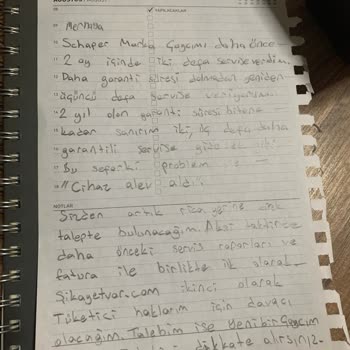 AĞUSTOS
YAPILACAKLAR
09 Merhaba
10 Schaper Marka Çaycımı daha önce
11 2 ay içinde iki defa servise verdim.
12 Daha garanti süresi dolmadan yeniden
13 üçüncü defa servise veriyorum.
14 2 yıl olan garanti süresi bitene
15 kadar sanırım iki, üç defa daha
16 garantili servise gidecek
17 Bu seferki problem ise
18 "Cihaz alev aldı"
NOTLAR
Sizden artık rica yerine
talepte bulunacağım. Aksi taktirde
daha önceki servis raporları ve
fatura ile birlikte ilk olarak
Şikayetvar.com ikinci olarak
Tüketici haklarım için davacı
olacağım. Talebim ise Yeni bir Çaycım
dikkate alırsınız.